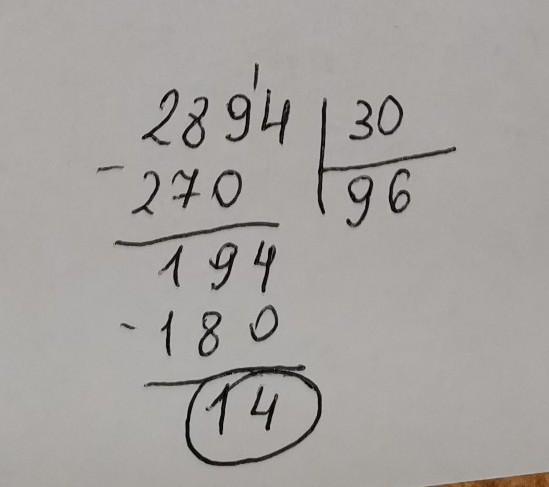 289'4 30
- 270 96
194
- 180
14